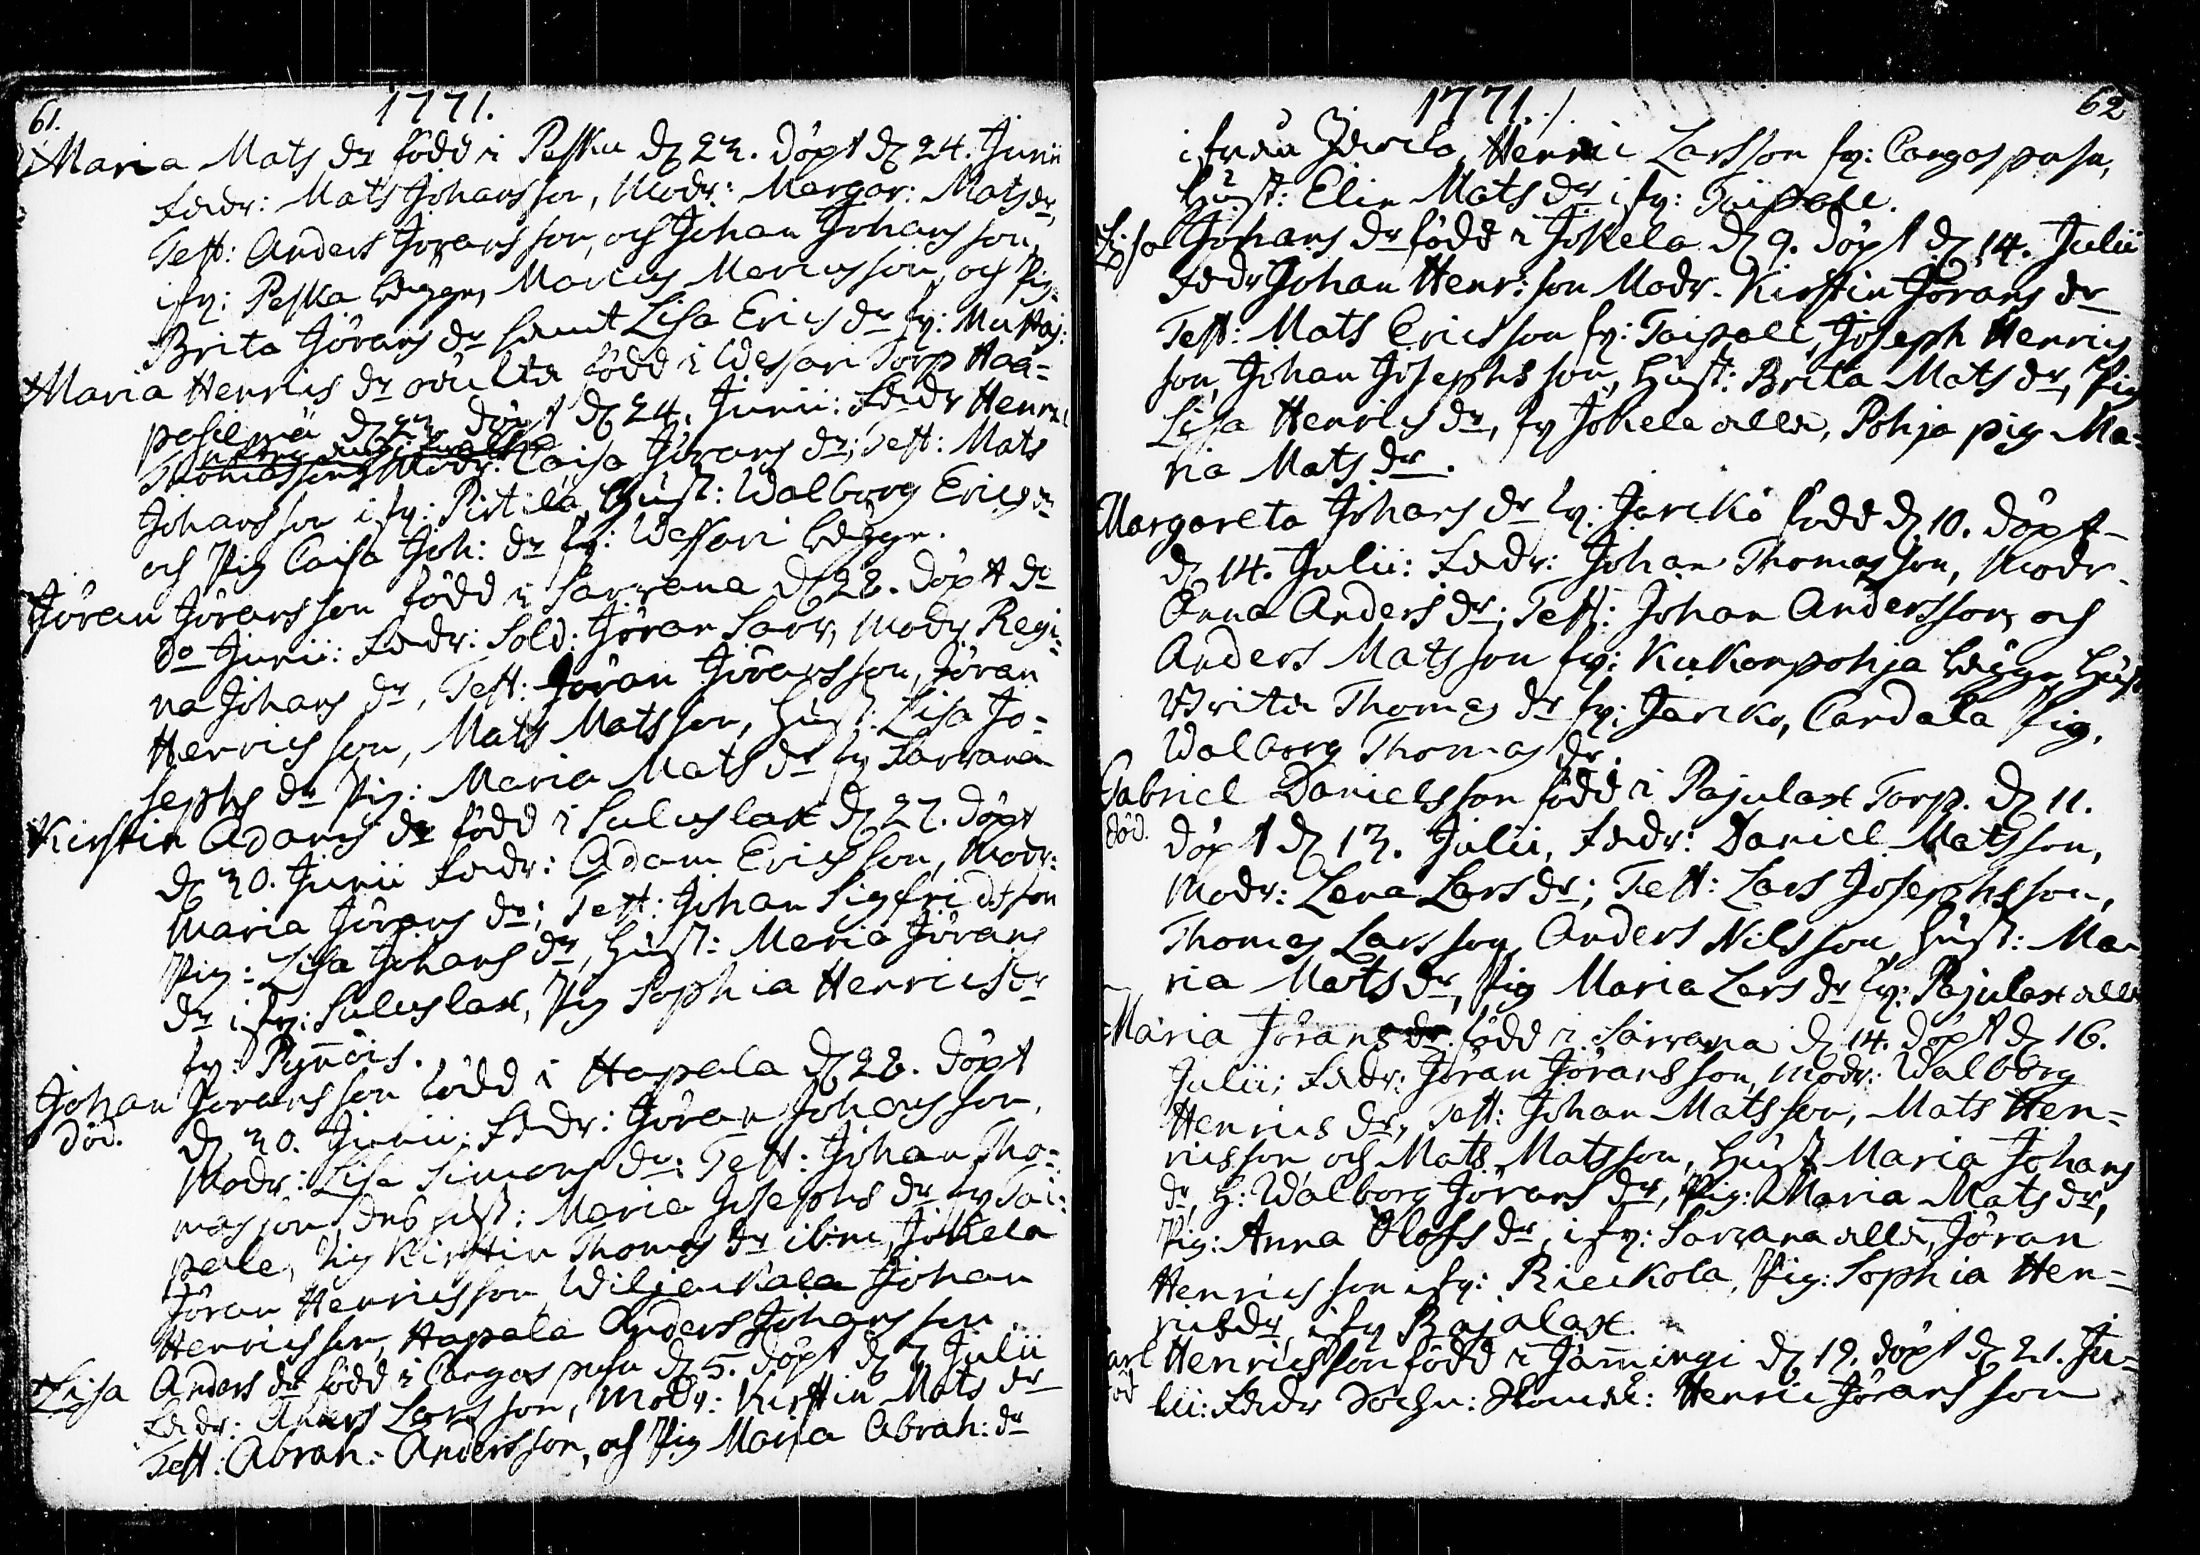 61.
1771.
Maria Mats dr född i Peska d 23. döpt d 24. Junii
Fadr: Mats Johansson, Modr: Margar: Mats dr,
Test: Anders Jöransson, och Johan Johansson,
i fr: Peska bägge, Marcus Marcusson, och Pig:
Brita Jörans dr samt Lisa Erics dr fr:
Maria Henrics dr oäkta född i Wessari Torp Haa=
d 23. döpt d 24. Junii: Fadr Henric
Thomasson, Modr: Caisa Jörans dr; Test: Mats
Johansson i fr: Pirtilä, Hust: Walborg Erics dr
och Pig Caisa Joh: dr fr: Wessari bägge.
Jöran Jöransson född i Sarvana d 28. döpt do
do Junii: Fadr: Sold: Jöran Sarv, Modr Regi=
na Johans dr, Test: Jöran Jöransson, Jöran
Henricsson, Mats Matsson, Hust: Lisa Jo=
sephs dr Pig: Maria Mats dr fr Sarvana
Kirstin Adams dr född i Suluslax d 27. döpt
d 30. Junii Fadr: Adam Ericsson, Modr:
Maria Jörans dr; Test: Johan Sigfridsson
Pig: Lisa Johans dr, Hust: Maria Jörans
dr i fr: Suluslax, Pig Sophia Henrics dr
fr: Pynnöis.
Johan Jöransson född i Hapala d 28. döpt
död. d 30. Junii, Fadr: Jöran Johansson,
Modr: Lisa Simons dr; Test: Johan Tho=
masson dess Hust: Maria Josephs dr fr Tai=
pale, Pig Kirstin Thomas dr ibm, Jokela
Jöran Henricsson, Wiljackala Johan
Henricsson, Hapala Anders Johansson.
Lisa Anders dr född i Cangas d 5. döpt d 7 Julii
Fadr: Anders Larsson, Modr: Kirstin Mats dr
Test: Abrah: Andersson, och Pig Maria Abrah: dr
62
1771.
ifrån Henric Larsson fr: Cangas
Hust: Elin Mats dr i fr: Taipale.
Lisa Johans dr född i Jokela d 9. döpt d 14. Julii
Fadr Johan Henr:son Modr. Kirstin Jörans dr
Test: Mats Ericsson fr: Taipale, Joseph Henrics
son, Johan Josephsson, Hust: Brita Mats dr, Pig
Lisa Henrics dr, fr Jokela alla, Pohja pig Ma=
ria Mats dr.
Margareta Johans dr fr: Jarcko född d 10. döpt
d 14. Julii: Fadr: Johan Thomasson, Modr.
Anna Anders dr; Test: Johan Andersson, och
Anders Matsson fr: Kukonpohja bägge, Hust
Brita Thomas dr fr: Jarcko, Cardala Pig.
Walborg Thomas dr.
Gabriel Danielsson född i Pajulax Torp. d 11.
död. döpt d 13. Julii, Fadr: Daniel Matsson,
Modr: Lena Lars dr; Test: Lars Josephsson,
Thomas Larsson, Anders Nilsson Hust: Ma
ria Mats dr, Pig Maria Lars dr fr: Pajulax alla
Maria Jörans dr född i Sarvana d 14. döpt d 16.
Julii; Fadr: Jöran Jöransson, Modr: Walborg
Henrics dr, Test: Johan Matsson, Mats Hen=
ricsson och Mats Matsson, Hust Maria Johans
dr, H: Walborg Jörans dr, Pig: Maria Mats dr,
Pig: Anna Olofs dr, i fr: Sarvana alla, Jöran
Henricsson i fr: Rieckola, Pig: Sophia Hen=
rics dr i fr Pajalax.
Carl Henricsson född i Jämingi d 19. döpt d 21. Ju=
död lii: Fadr Sochn: Henric Jöransson